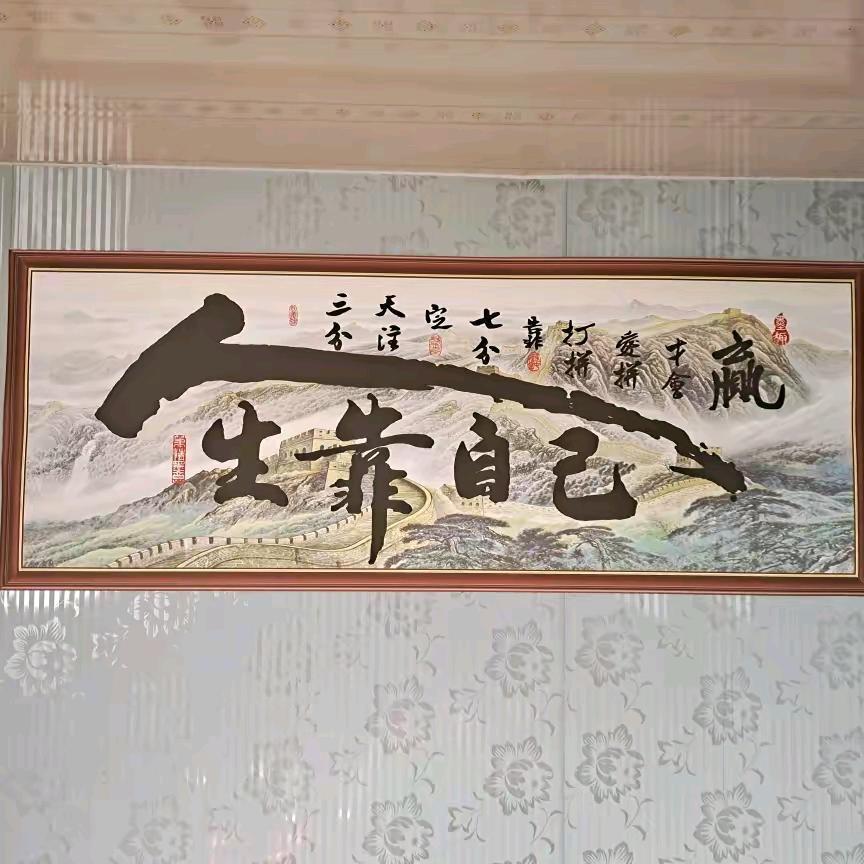 人生靠自己
三分天注定
七分靠打拼
爱拼才会赢